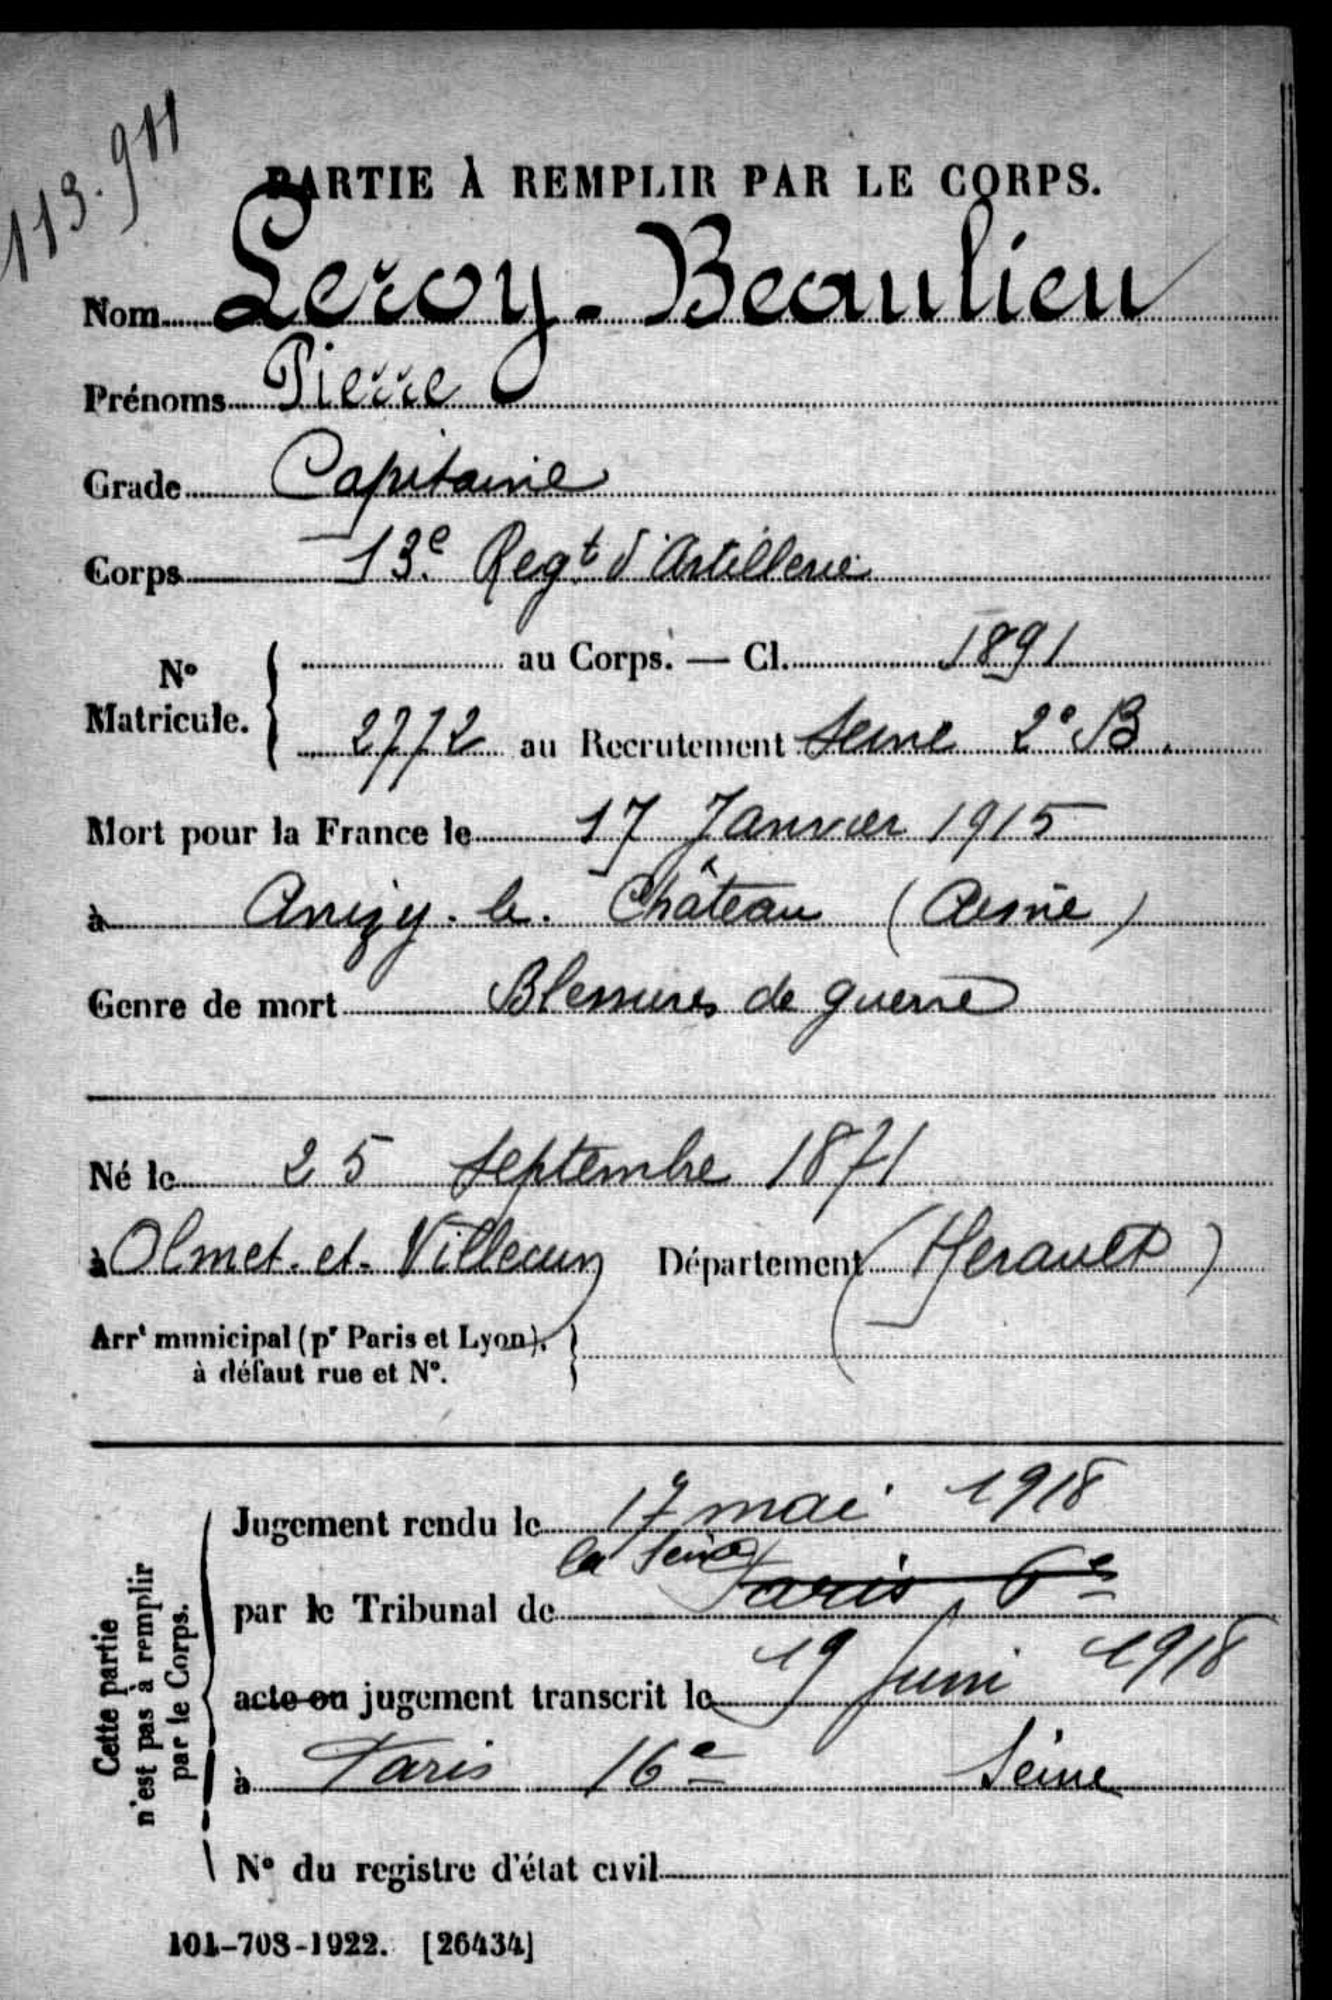 113.911
PARTIE À REMPLIR PAR LE CORPS.
Nom Leroy-Beaulieu
Prénoms Pierre
Grade Capitaine
Corps 13e Regt d'Artillerie
No Matricule. { au Corps. — Cl. 1891
2772 au Recrutement Seine 2e B.
Mort pour la France le 17 Janvier 1915
à Anizy-le-Château (Aisne)
Genre de mort Blessures de guerre
Né le 25 Septembre 1871
à Olmet-et-Villecun Département (Herault)
Arrt municipal (pr Paris et Lyon),
à défaut rue et No.
Cette partie
n'est pas à remplir
par le Corps.
Jugement rendu le 17 mai 1918
la Seine
par le Tribunal de Paris
acte ou jugement transcrit le 19 Juin 1918
à Paris 16e Seine
No du registre d'état civil
101-708-1922. [26434]